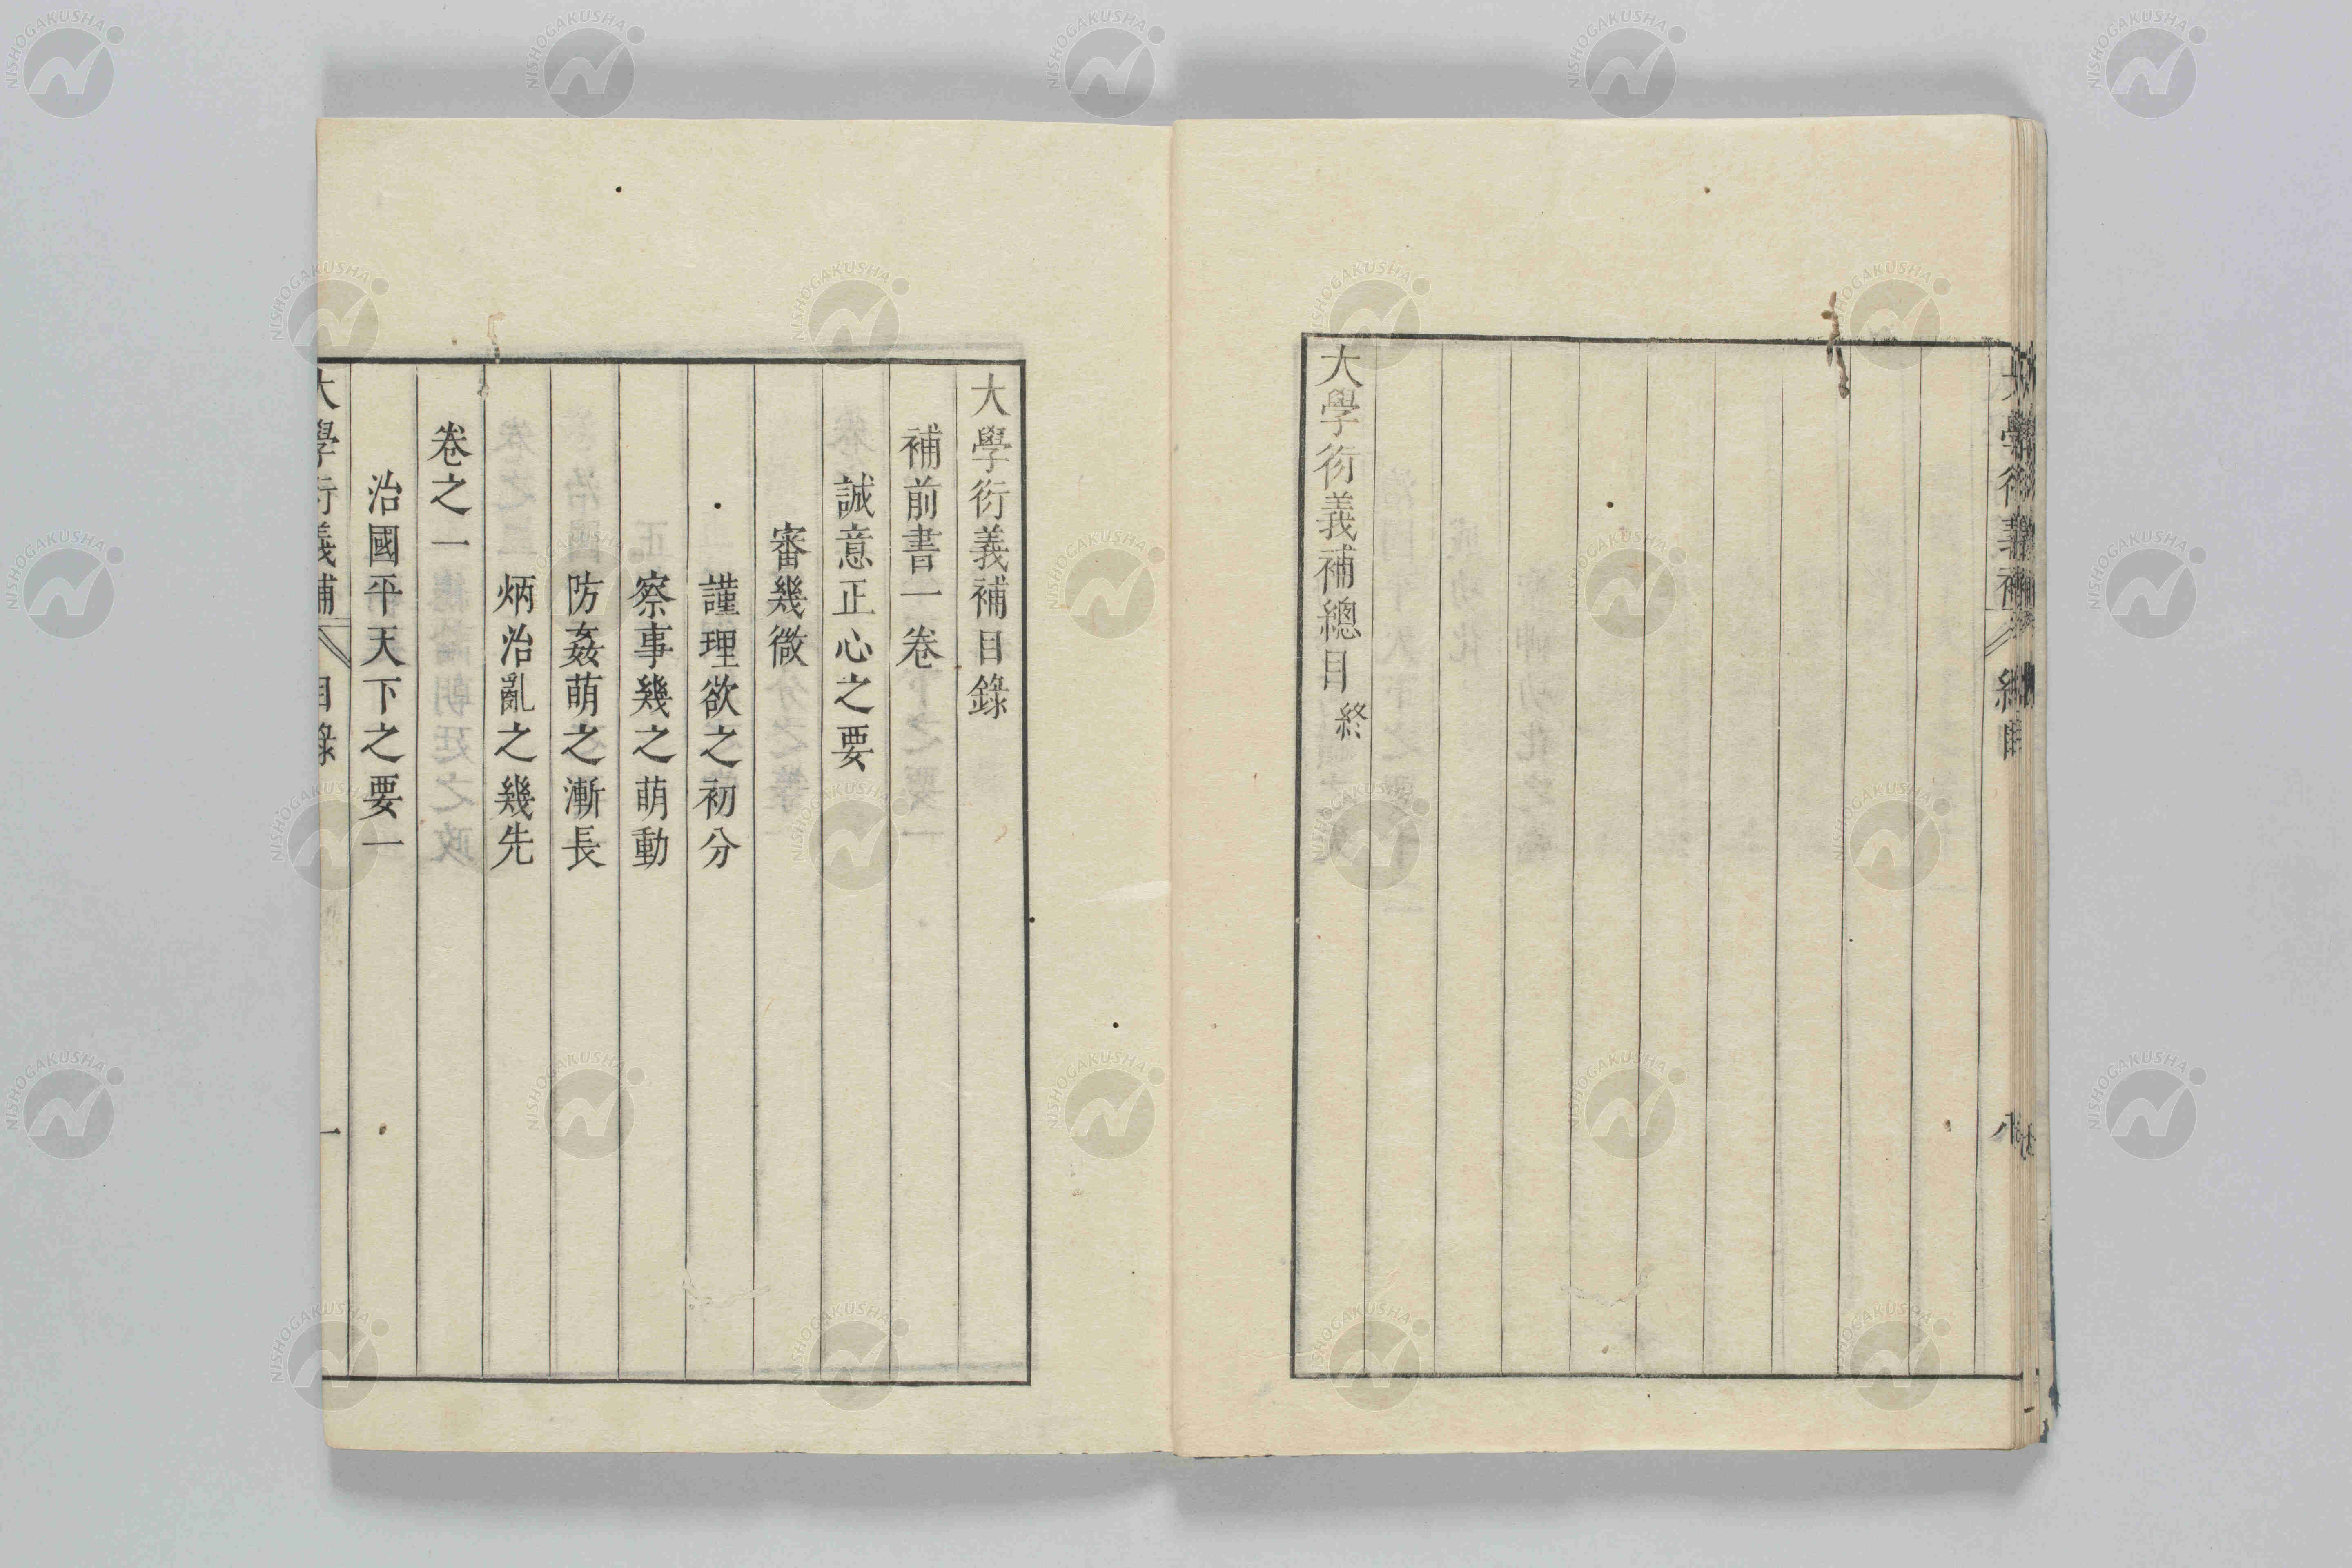 大學衍義補總目終
大學衍義補目錄
補前書一卷
誠意正心之要
審幾微
謹理欲之初分
察事幾之萌動
防姦萌之漸長
炳治亂之幾先
卷之一
治國平天下之要一
大學衍義補 目錄 一